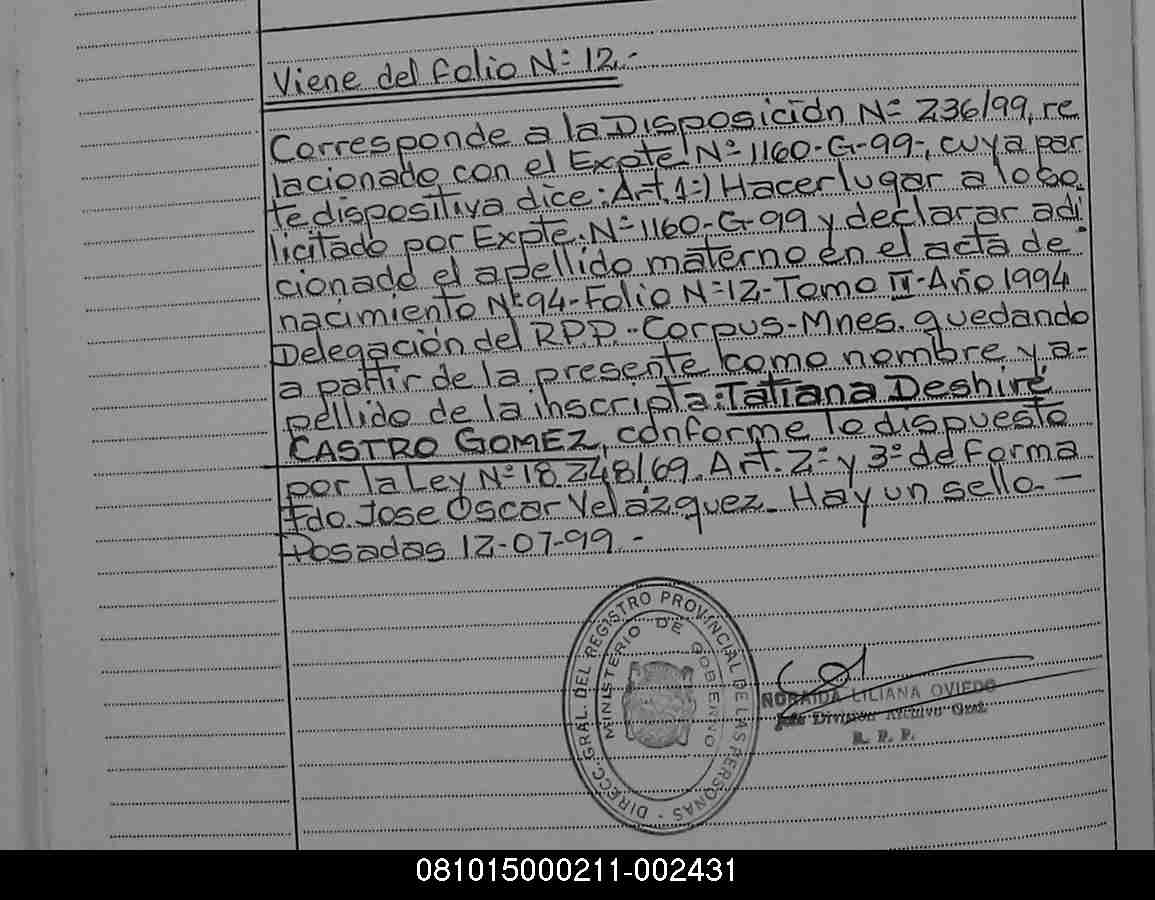 Viene del folio Nº 12.-
Corresponde a la Disposición Nº 236/99, re
lacionado con el Expte Nº 1160-G-99-, cuya par
te dispositiva dice: Art. 1º) Hacer lugar a lo so
licitado por Expte. Nº 1160-G-99 y declarar adi
cionado el apellido materno en el acta de
nacimiento Nº 94-Folio Nº 12-Tomo II-Año 1994
Delegación del R.P.P.-Corpus-Mnes. quedando
a partir de la presente como nombre y a-
pellido de la inscripta: Tatiana Deshiré
CASTRO GOMEZ, conforme lo dispuesto
por la Ley Nº 18.248/69. Art. 2º y 3º de forma
Fdo. Jose Oscar Velázquez. Hay un sello.-
Posadas 12-07-99.-
DIRECC. GRAL. DEL REGISTRO PROVINCIAL DE LAS PERSONAS
MINISTERIO DE GOBIERNO
NORAIDA LILIANA OVIEDO
Jefe Division Archivo Gral.
R. P. P.
081015000211-002431